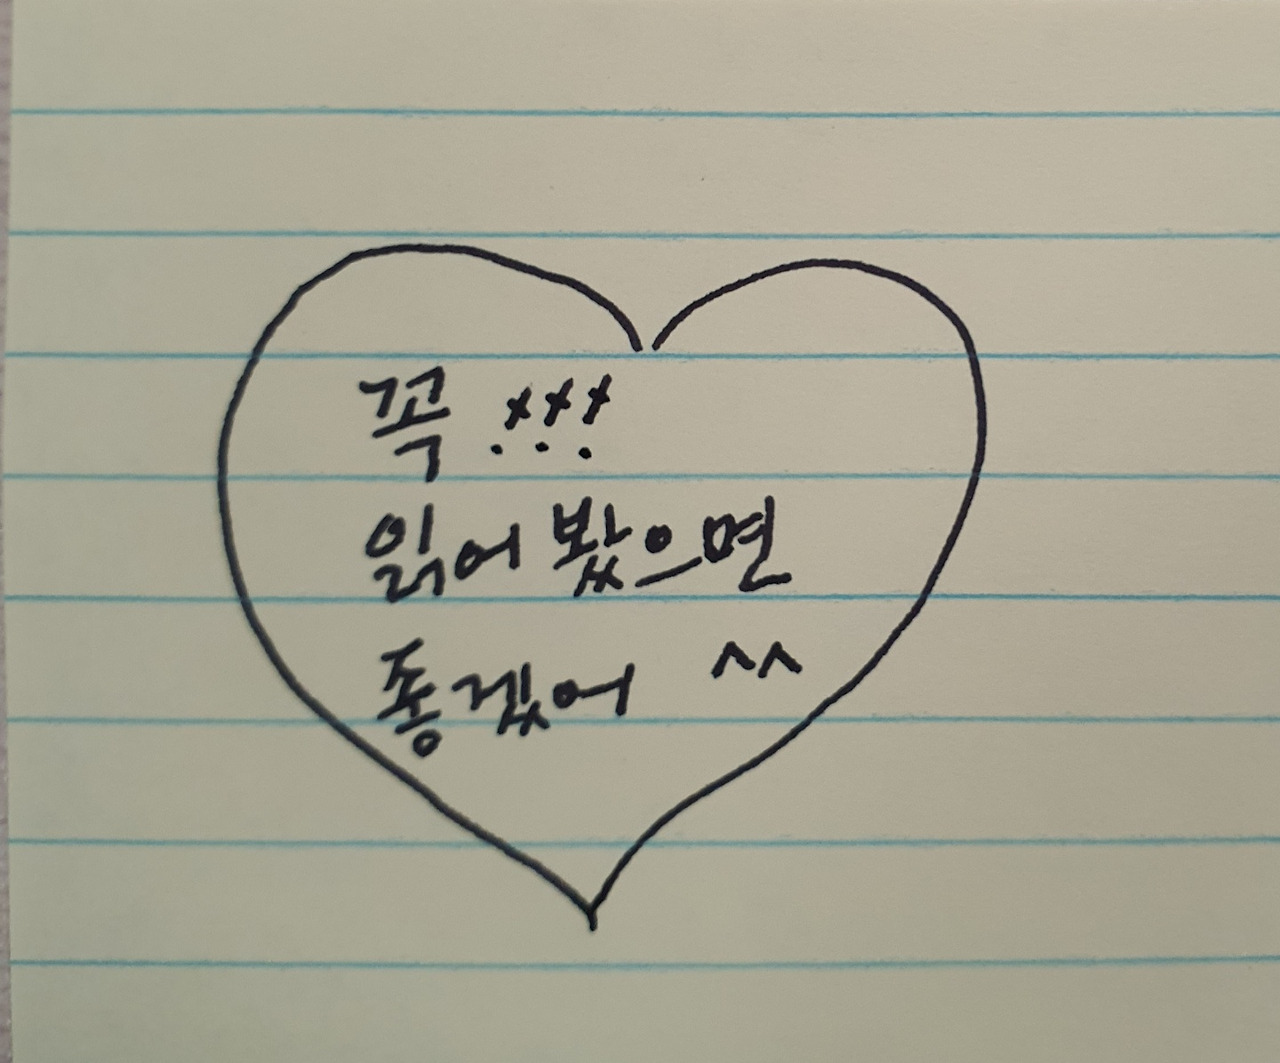 꼭 !!!
읽어 봤으면
좋겠어 ^^